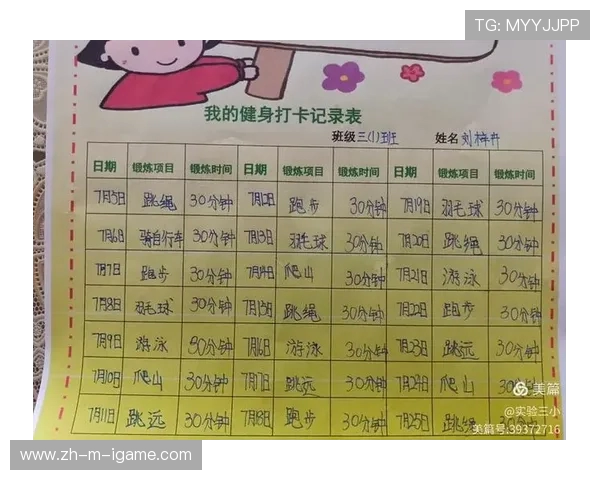 TG: MYYJJPP
我的健身打卡记录表
班级 三(1)班 姓名 刘梓卉
日期 锻炼项目 锻炼时间 日期 锻炼项目 锻炼时间 日期 锻炼项目 锻炼时间
7月5日 跳绳 30分钟 7月12日 跑步 30分钟 7月19日 羽毛球 30分钟
7月6日 骑自行车 30分钟 7月13日 羽毛球 30分钟 7月20日 跳绳 30分钟
7月7日 跑步 30分钟 7月14日 爬山 30分钟 7月21日 游泳 30分钟
7月8日 羽毛球 30分钟 7月15日 跳绳 30分钟 7月22日 跑步 30分钟
7月9日 游泳 30分钟 7月16日 游泳 30分钟 7月23日 跳远 30分钟
7月10日 爬山 30分钟 7月17日 跳远 30分钟 7月24日 爬山 30分钟
7月11日 跳远 30分钟 7月18日 跑步 30分钟 7月25日 跳绳 30分钟
美篇
@实验三小
美篇号:39372716
www.zh-m-igame.com